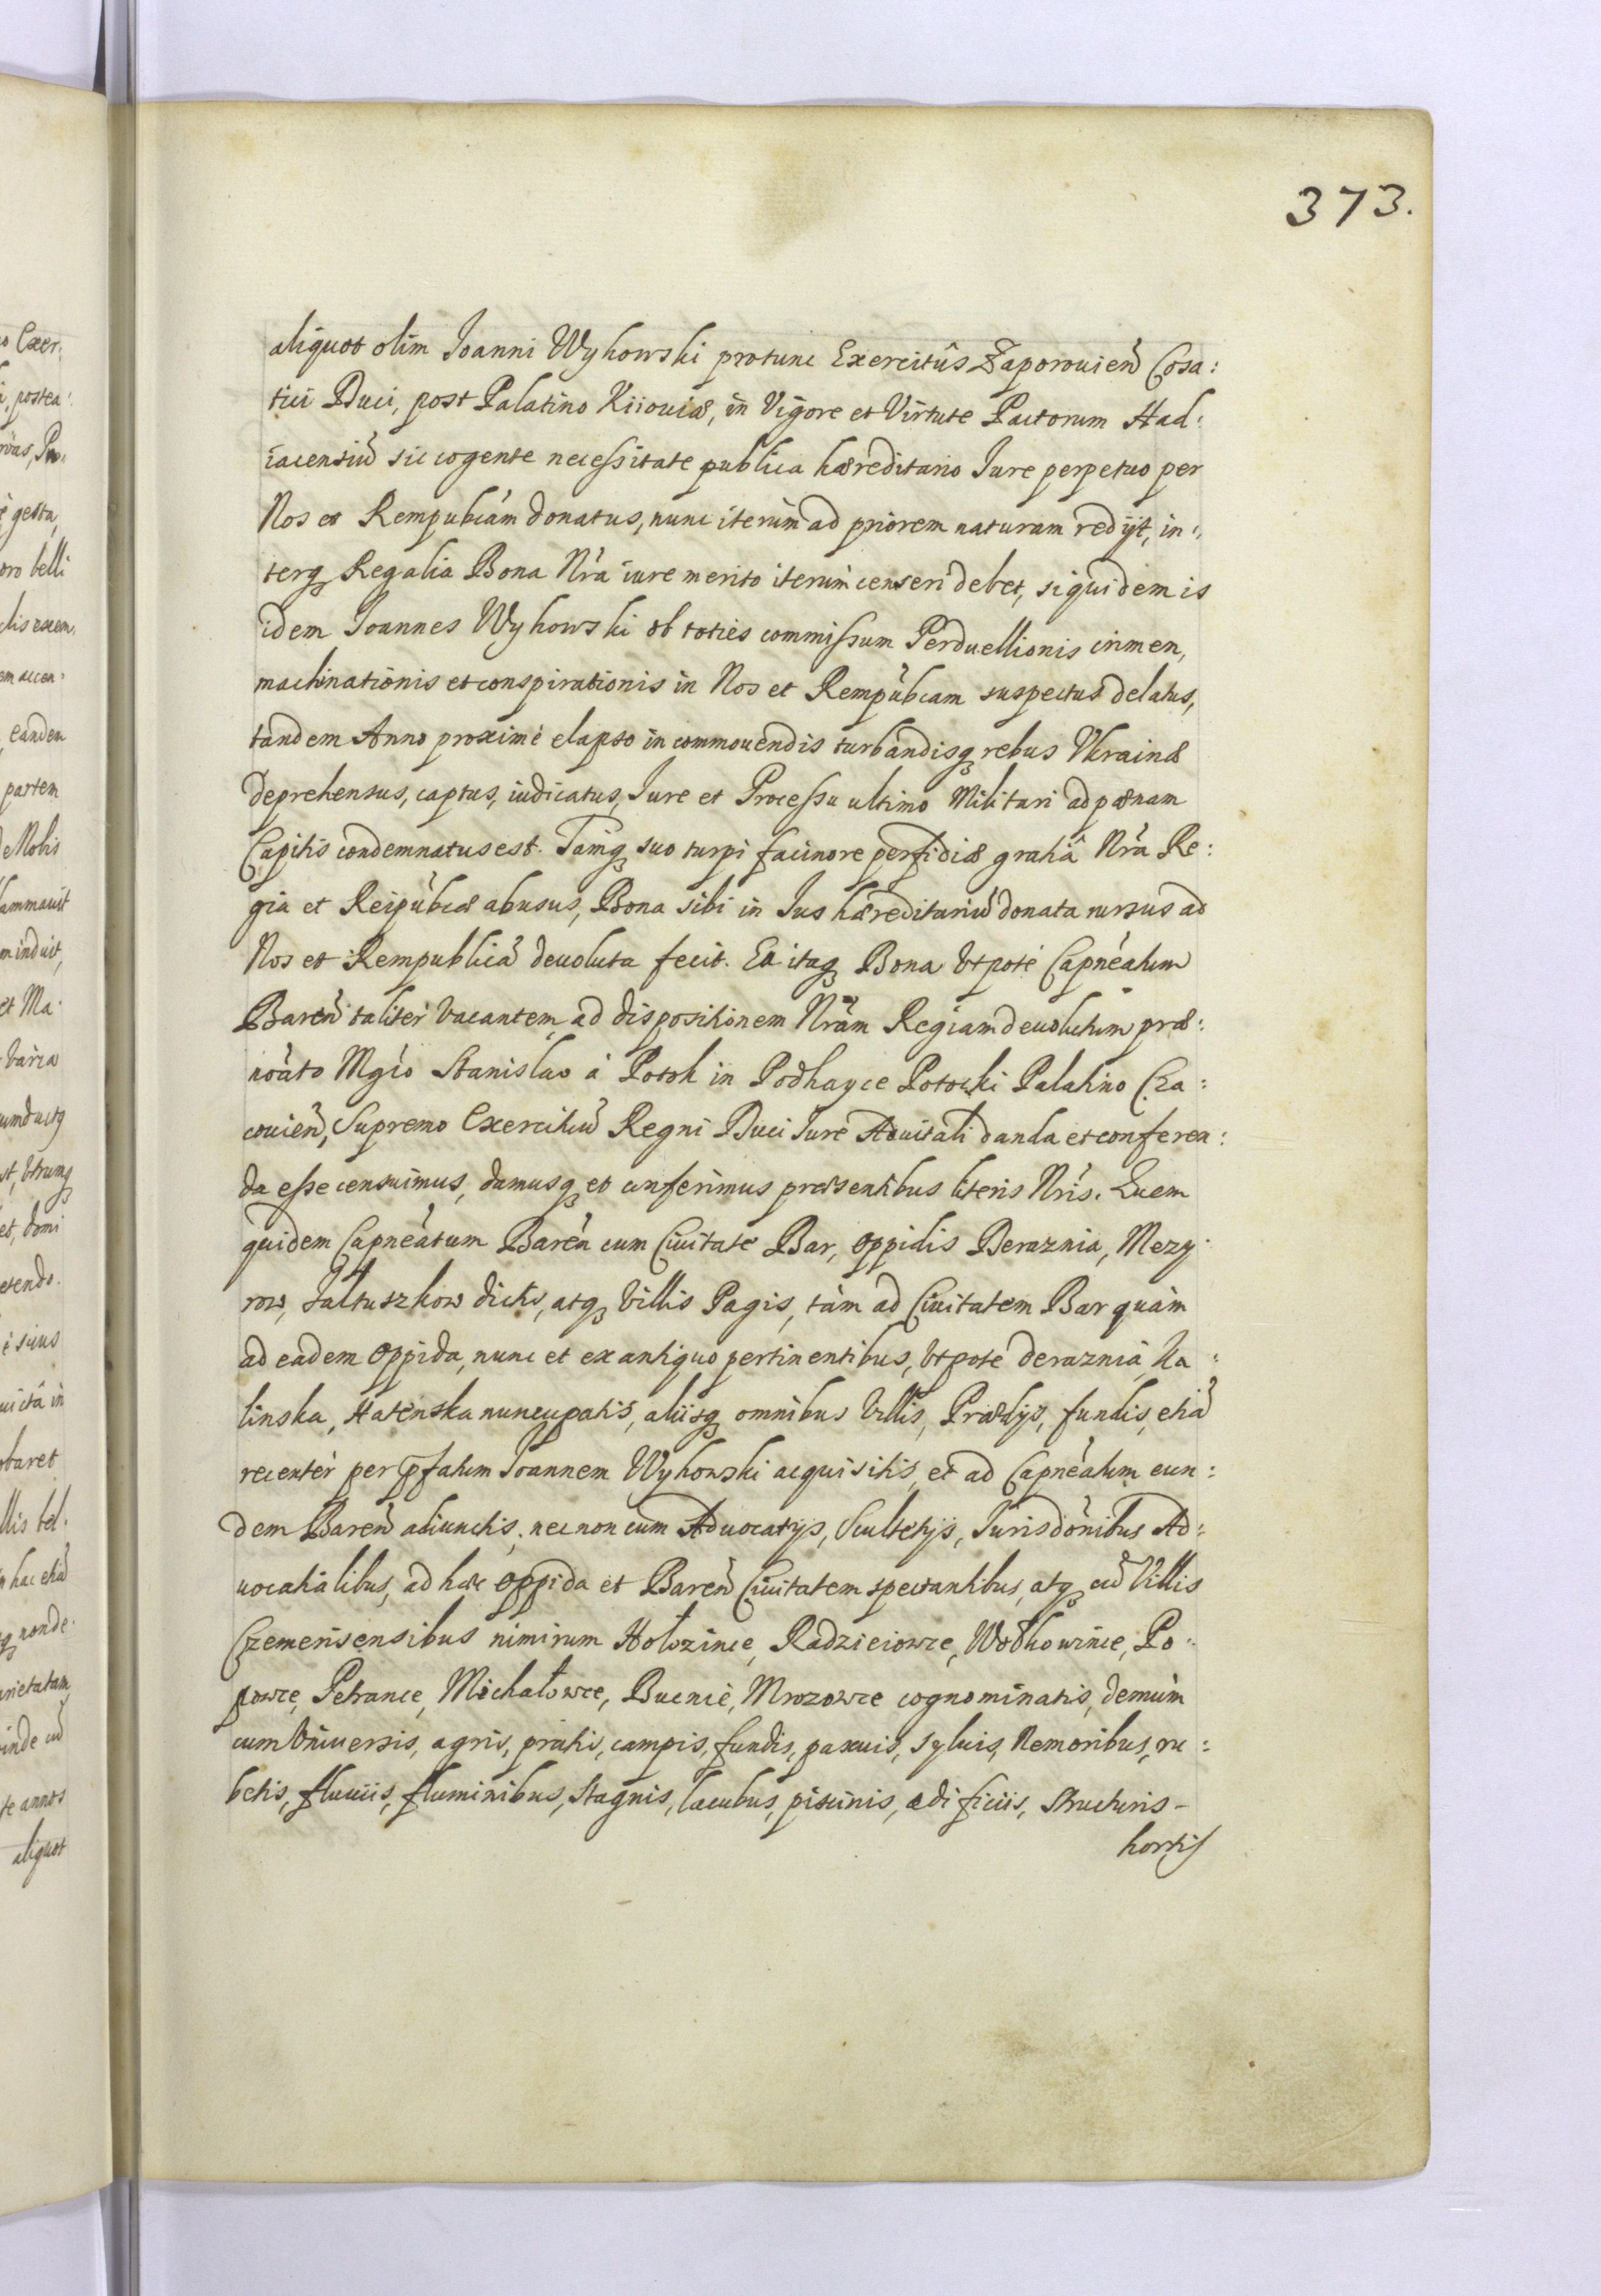 373.
aliquot olim Joanni Wyhowski protunc Exercitûs Zaporouien̄ Cosa:
tici Duci, post Palatino Kiiouiæ, in Vigore et Virtute Pactorum Had:
iacensiū sic cogente necessitate publica hæreditario Jure perpetuo per
Nos et Rempubcám donatus, nunc iterùm ad priorem naturam redijt, in:
terq3 Regalia Bona Nrá iure merito iterùm censeri debet, siquidem is
idem Joannes Wyhowski ob toties commissum Perduellionis crimen,
machinationis et conspirationis in Nos et Rempúbcam suspectus delatus,
tandem Anno proximè elapso in commouendis turbandisq3 rebus Vkrainæ
deprehensus, captus, iudicatus, Jure et Processu ultimo Militari ad pænam
Capitis condemnatus est. Tamq3 suo turpi facinore perfidiæ gratiâ Nrá Re:
gia et Reipúbcæ abusus, Bona sibi in Jus hæreditariū donata rursus ad
Nos et Rempublicā deuoluta fecit. Ea itaq3 Bona Vtpotè Capneátum
Baren̄ talitèr Vacantem, ad dispositionem Nrám Regiam deuolutum præ:
noáto Mgćo Stanislao à Potok in Podhayce Potocki Palatino Cra:
couien̄, Supremo Exercituū Regni Duci Jure Aduitali danda et conferen:
da esse censuimus, damusq3 et conferimus præsentibus literis Nrís. Quem
quidem Capneátum Barén cum Ciuitate Bar, oppidis Deraznia, Mezy:
row, Jałtuszkow dictis, atq3 Villis Pagis, tàm ad Ciuitatem Bar quàm
ad eadem oppida, nunc et ex antiquo pertinentibus, Vtpotè deraznia, Ka:
linska, Hatenska nuncupatis, aliisq3 omnibus Villis, Prædijs, fundis, etiā
recentèr per pfatum Joannem Wyhowski acquisitis, et ad Capneátum eun:
dem Baren̄ adiunctis, nec non cum Aduocatijs, Scultetijs, Jurisdónibus Ad:
uocatialibus, ad hæc oppida et Baren̄ Ciuitatem spectantibus, atq3 cū Villis
Czemerisensibus nimirum Hołozince, Radzieiowce, Wołkowince, Po:
powce, Petrance, Michałowce, Bucnie, Mrozowce cognominatis, demùm
cum Vniuersis, agris, pratis, campis, fundis, pascuis, syluis, Nemoribus, ru:
betis, fluuiis, fluminibus, stagnis, lacubus, piscinis, ædificiis, structuris-
hortis